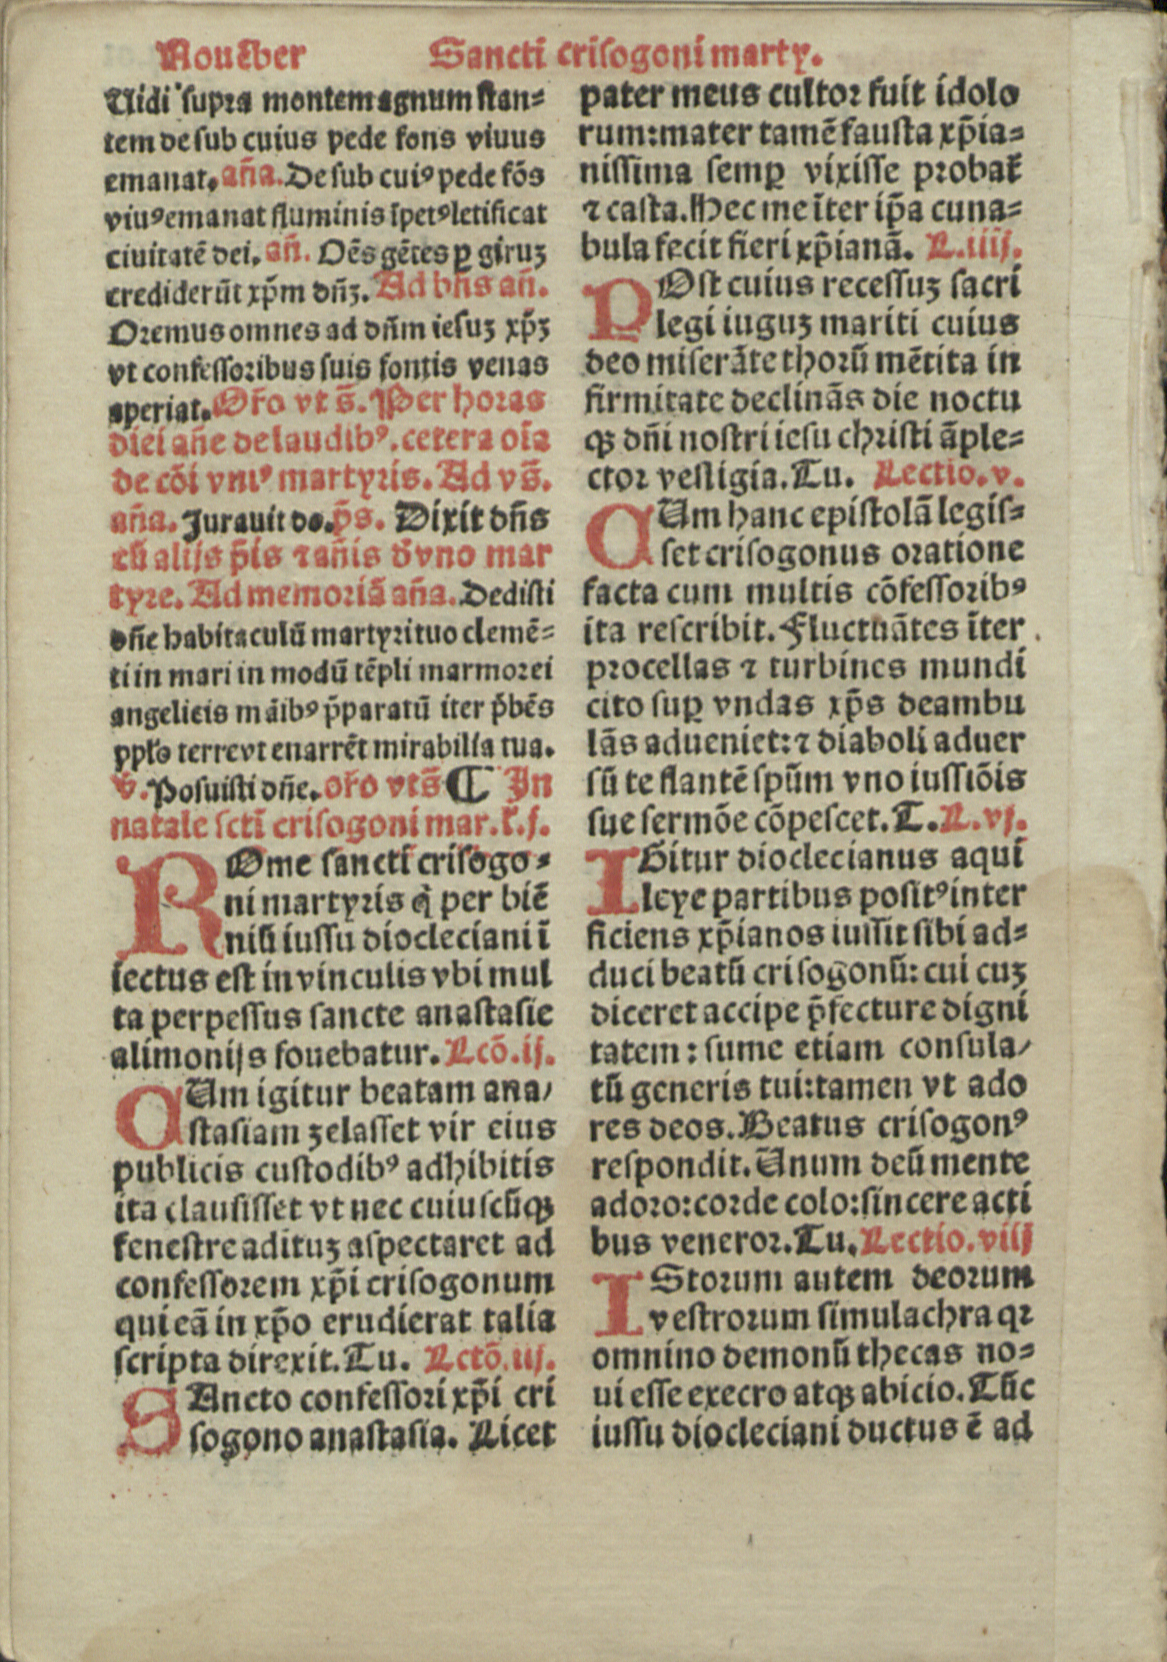 Nouēber Sancti criſogoni marty.
Uidi ſupra montem agnum ſtan⸗
tem de ſub cuius pede fons viuus
emanat. aña. De ſub cuiꝰ pede fōs
viuꝰ emanat fluminis īpetꝰ letificat
ciuitatē dei. añ. Oēs gētes ꝑ giruꝫ
crediderūt xp̄m dñꝫ. Ad bñs añ.
Oremus omnes ad dñm ieſuꝫ xp̄ꝫ
vt confeſſoribus ſuis fontis venas
aperiat. Oŕo vt s̄. Per horas
diei añe de laudibꝰ. cetera oīa
de cōi vniꝰ martyris. Ad vs̄.
aña. Jurauit do. p̄s. Dixit dñs
cū alijs p̄is ⁊ añis d̄ vno mar
tyre. Ad memoriā aña. Dediſti
dñe habitaculū martyri tuo clemē⸗
ti in mari in modū tēpli marmorei
angelicis māibꝰ p̄paratū iter p̄bēs
pplo terre vt enarrēt mirabilia tua.
v̄. Poſuiſti dñe. oŕo vt s̄ ¶ In
natale ſcti criſogoni mar. ł. j.
ROme ſancti criſogo⸗
ni martyris q̇ per biē
niū iuſſu diocleciani ī
iectus eſt in vinculis vbi mul
ta perpeſſus ſancte anaſtaſie
alimonijs fouebatur. Lcō. ij.
CUm igitur beatam ana/
ſtaſiam zelaſſet vir eius
publicis cuſtodibꝰ adhibitis
ita clauſiſſet vt nec cuiuſcūqꝫ
feneſtre adituꝫ aſpectaret ad
confeſſorem xp̄i criſogonum
qui eā in xp̄o erudierat talia
ſcripta direxit. Tu. Lctō. iij.
SAncto confeſſori xp̄i cri
ſogono anaſtaſia. Licet
pater meus cultor fuit idolo
rum: mater tamē fauſta xp̄ia⸗
niſſima ſemꝑ vixiſſe probat̄
⁊ caſta. Hec me īter ip̄a cuna⸗
bula fecit fieri xp̄ianā. L. iiij.
POſt cuius receſſuꝫ ſacri
legi iuguꝫ mariti cuius
deo miſerāte thorū mētita in
firmitate declinās die noctu
qꝫ dñi noſtri ieſu chriſti āple⸗
ctor veſtigia. Tu. Lectio. v.
CUm hanc epiſtolā legiſ⸗
ſet criſogonus oratione
facta cum multis cōfeſſoribꝰ
ita reſcribit. Fluctuātes īter
procellas ⁊ turbines mundi
cito ſuꝑ vndas xp̄s deambu
lās adueniet: ⁊ diaboli aduer
ſū te flantē ſpūm vno iuſſiōis
ſue ſermōe cōpeſcet. T. L. vj.
IGitur dioclecianus aqui
leye partibus poſitꝰ inter
ficiens xp̄ianos iuſſit ſibi ad⸗
duci beatū criſogonū: cui cuꝫ
diceret accipe p̄fecture digni
tatem: ſume etiam conſula/
tū generis tui: tamen vt ado
res deos. Beatus criſogonꝰ
reſpondit. Unum deū mente
adoro: corde colo: ſincere acti
bus veneror. Tu. Lectio. viij
IStorum autem deorum
veſtrorum ſimulachra qꝛ
omnino demonū thecas no⸗
ui eſſe execro atqꝫ abicio. Tūc
iuſſu diocleciani ductus ē ad